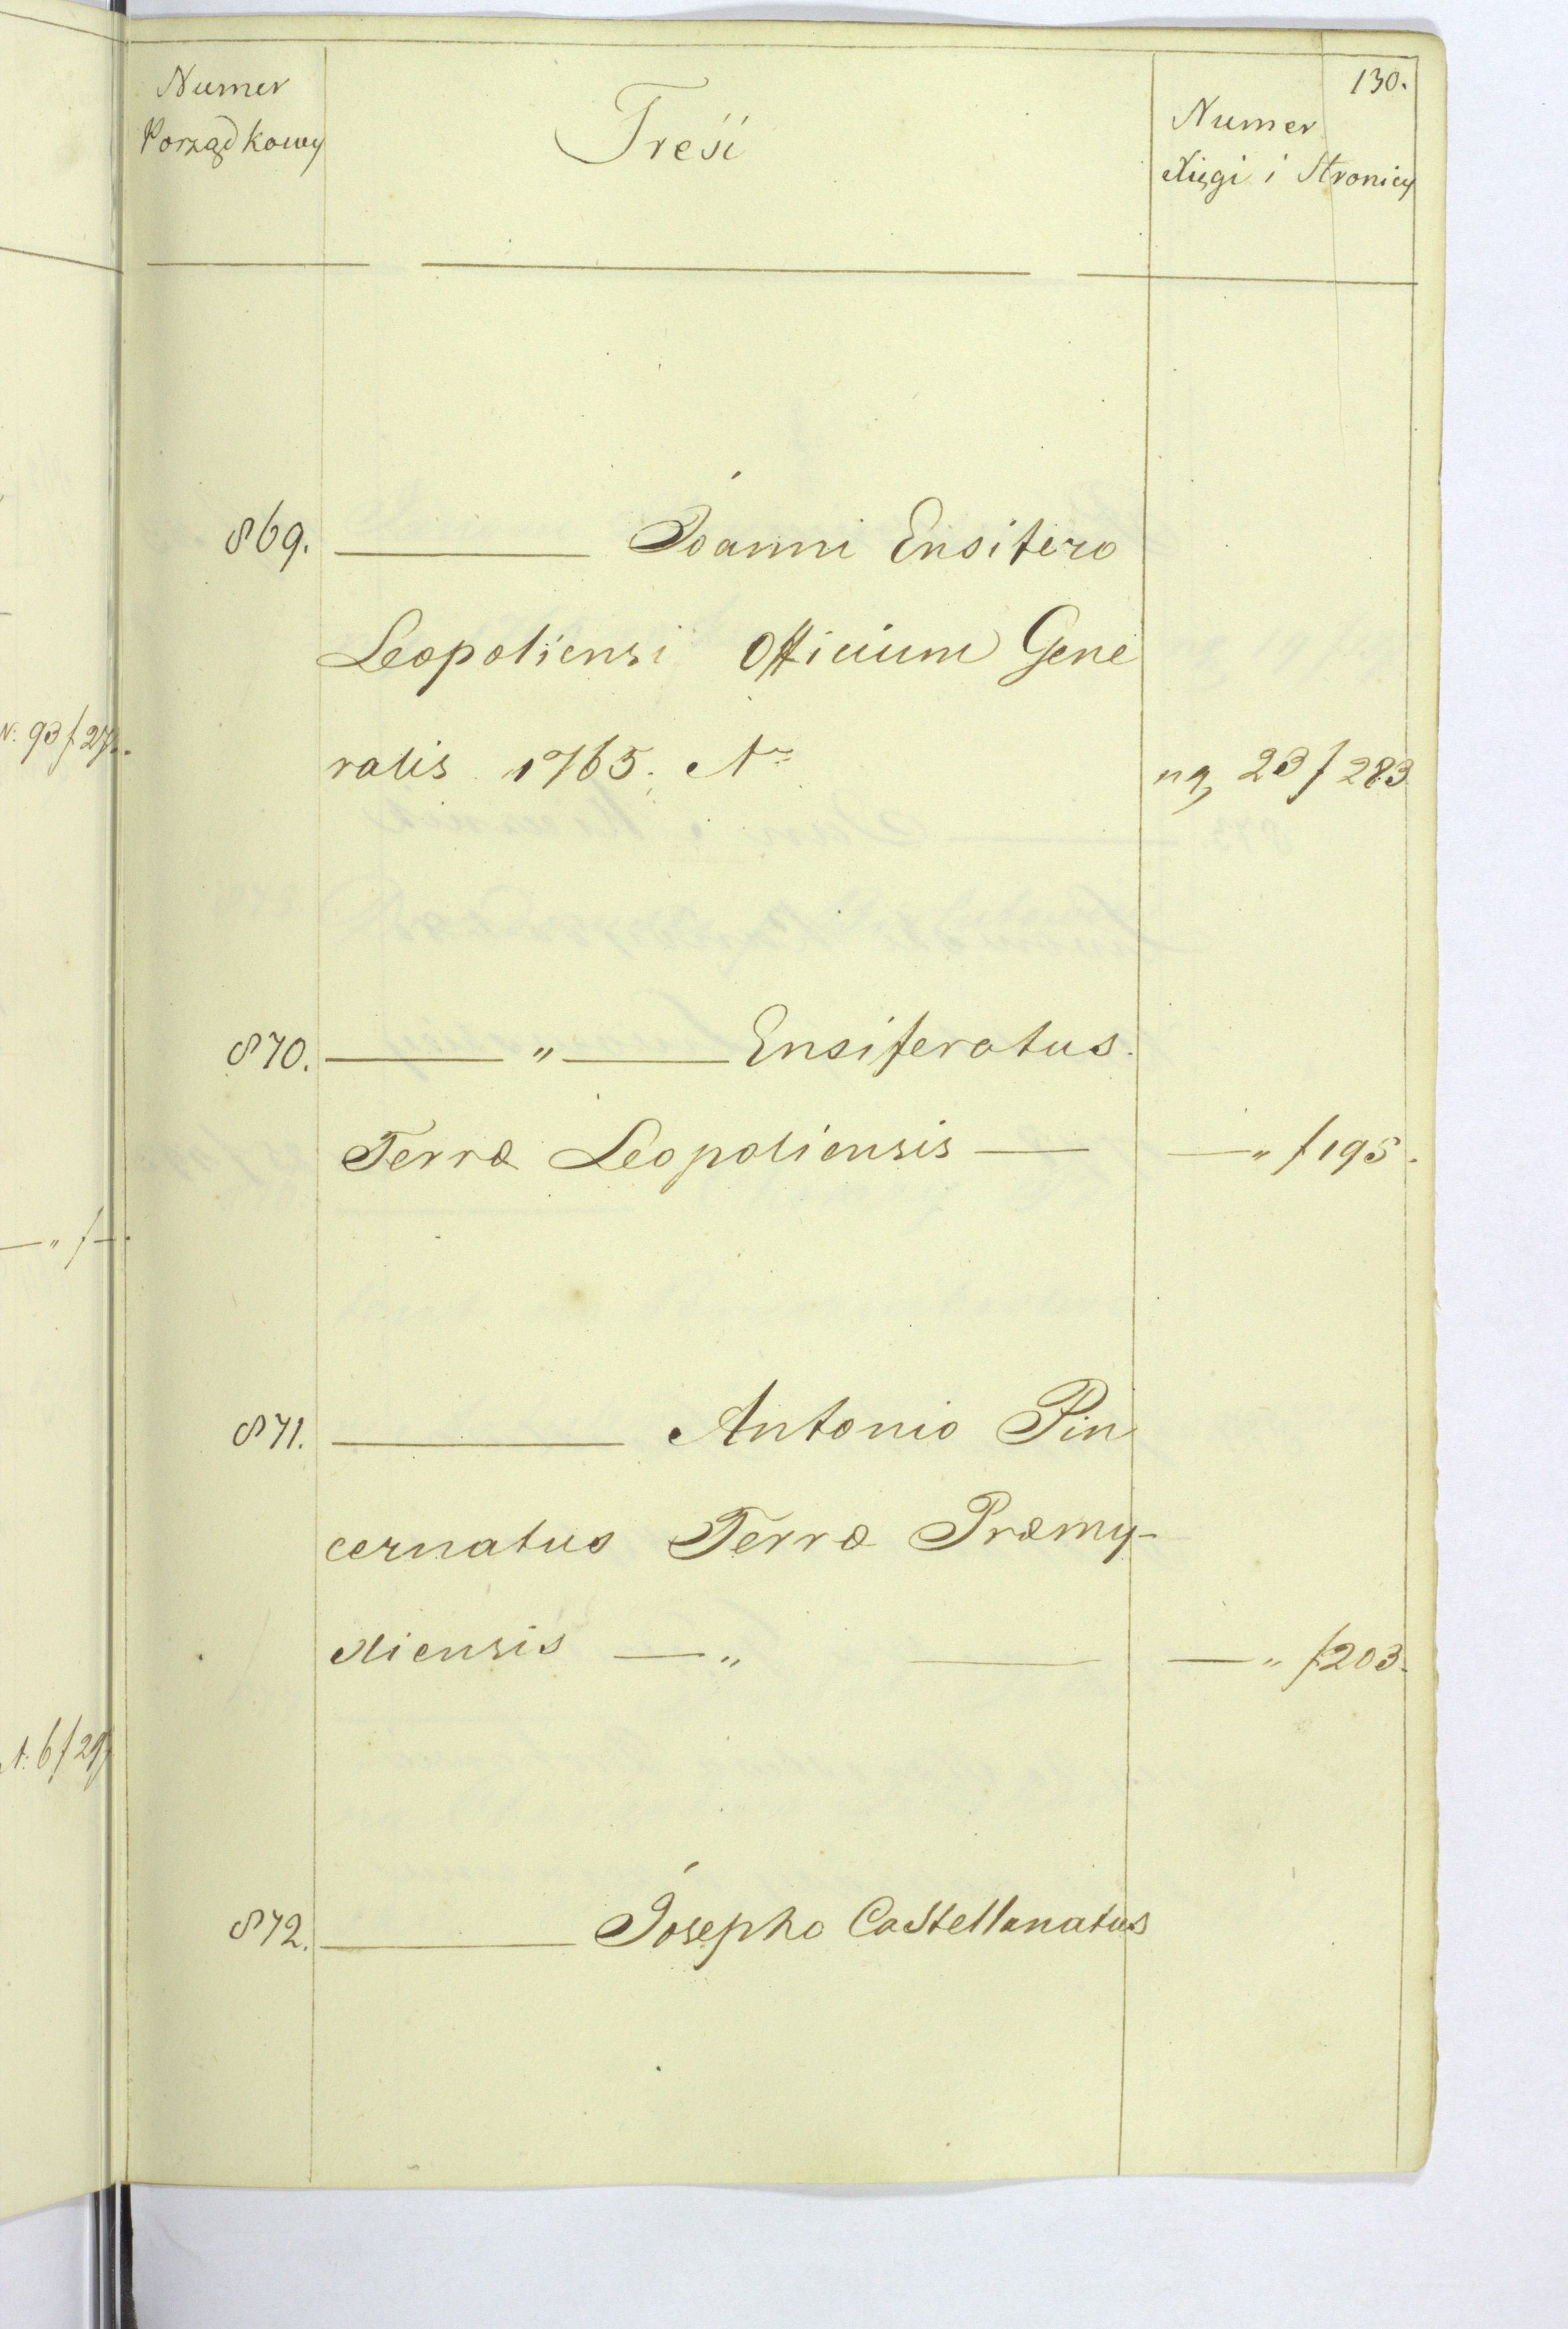 130.
Numer Porządkowy
Treść
Numer Xięgi i Stronicy
869. ——— Joanni Ensifero
Leopoliensi Officium Gene
ralis 1765. Nr 23 f 283
870. —— " —— Ensiferatus.
Terræ Leopoliensis — — " f 195.
871. ——— Antonio Pin
cernatus Terræ Præmy-
sliensis — " —— — " f 203.
872. ——— Josepho Castellanatus
N: 93 f 27
— " f —
N: 6 f 29